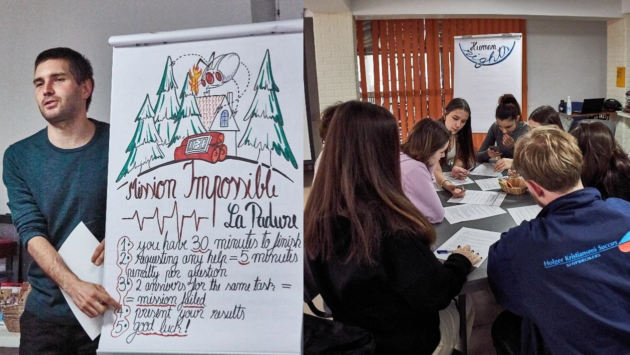 Mission Impossible
La Padure
1) you have 30 minutes to finish
2) Requesting any help = 5 minutes
penalty per question
3) 2 answers for the same task =
= mission failed
4) present your results
5) good luck!
Human
Rights